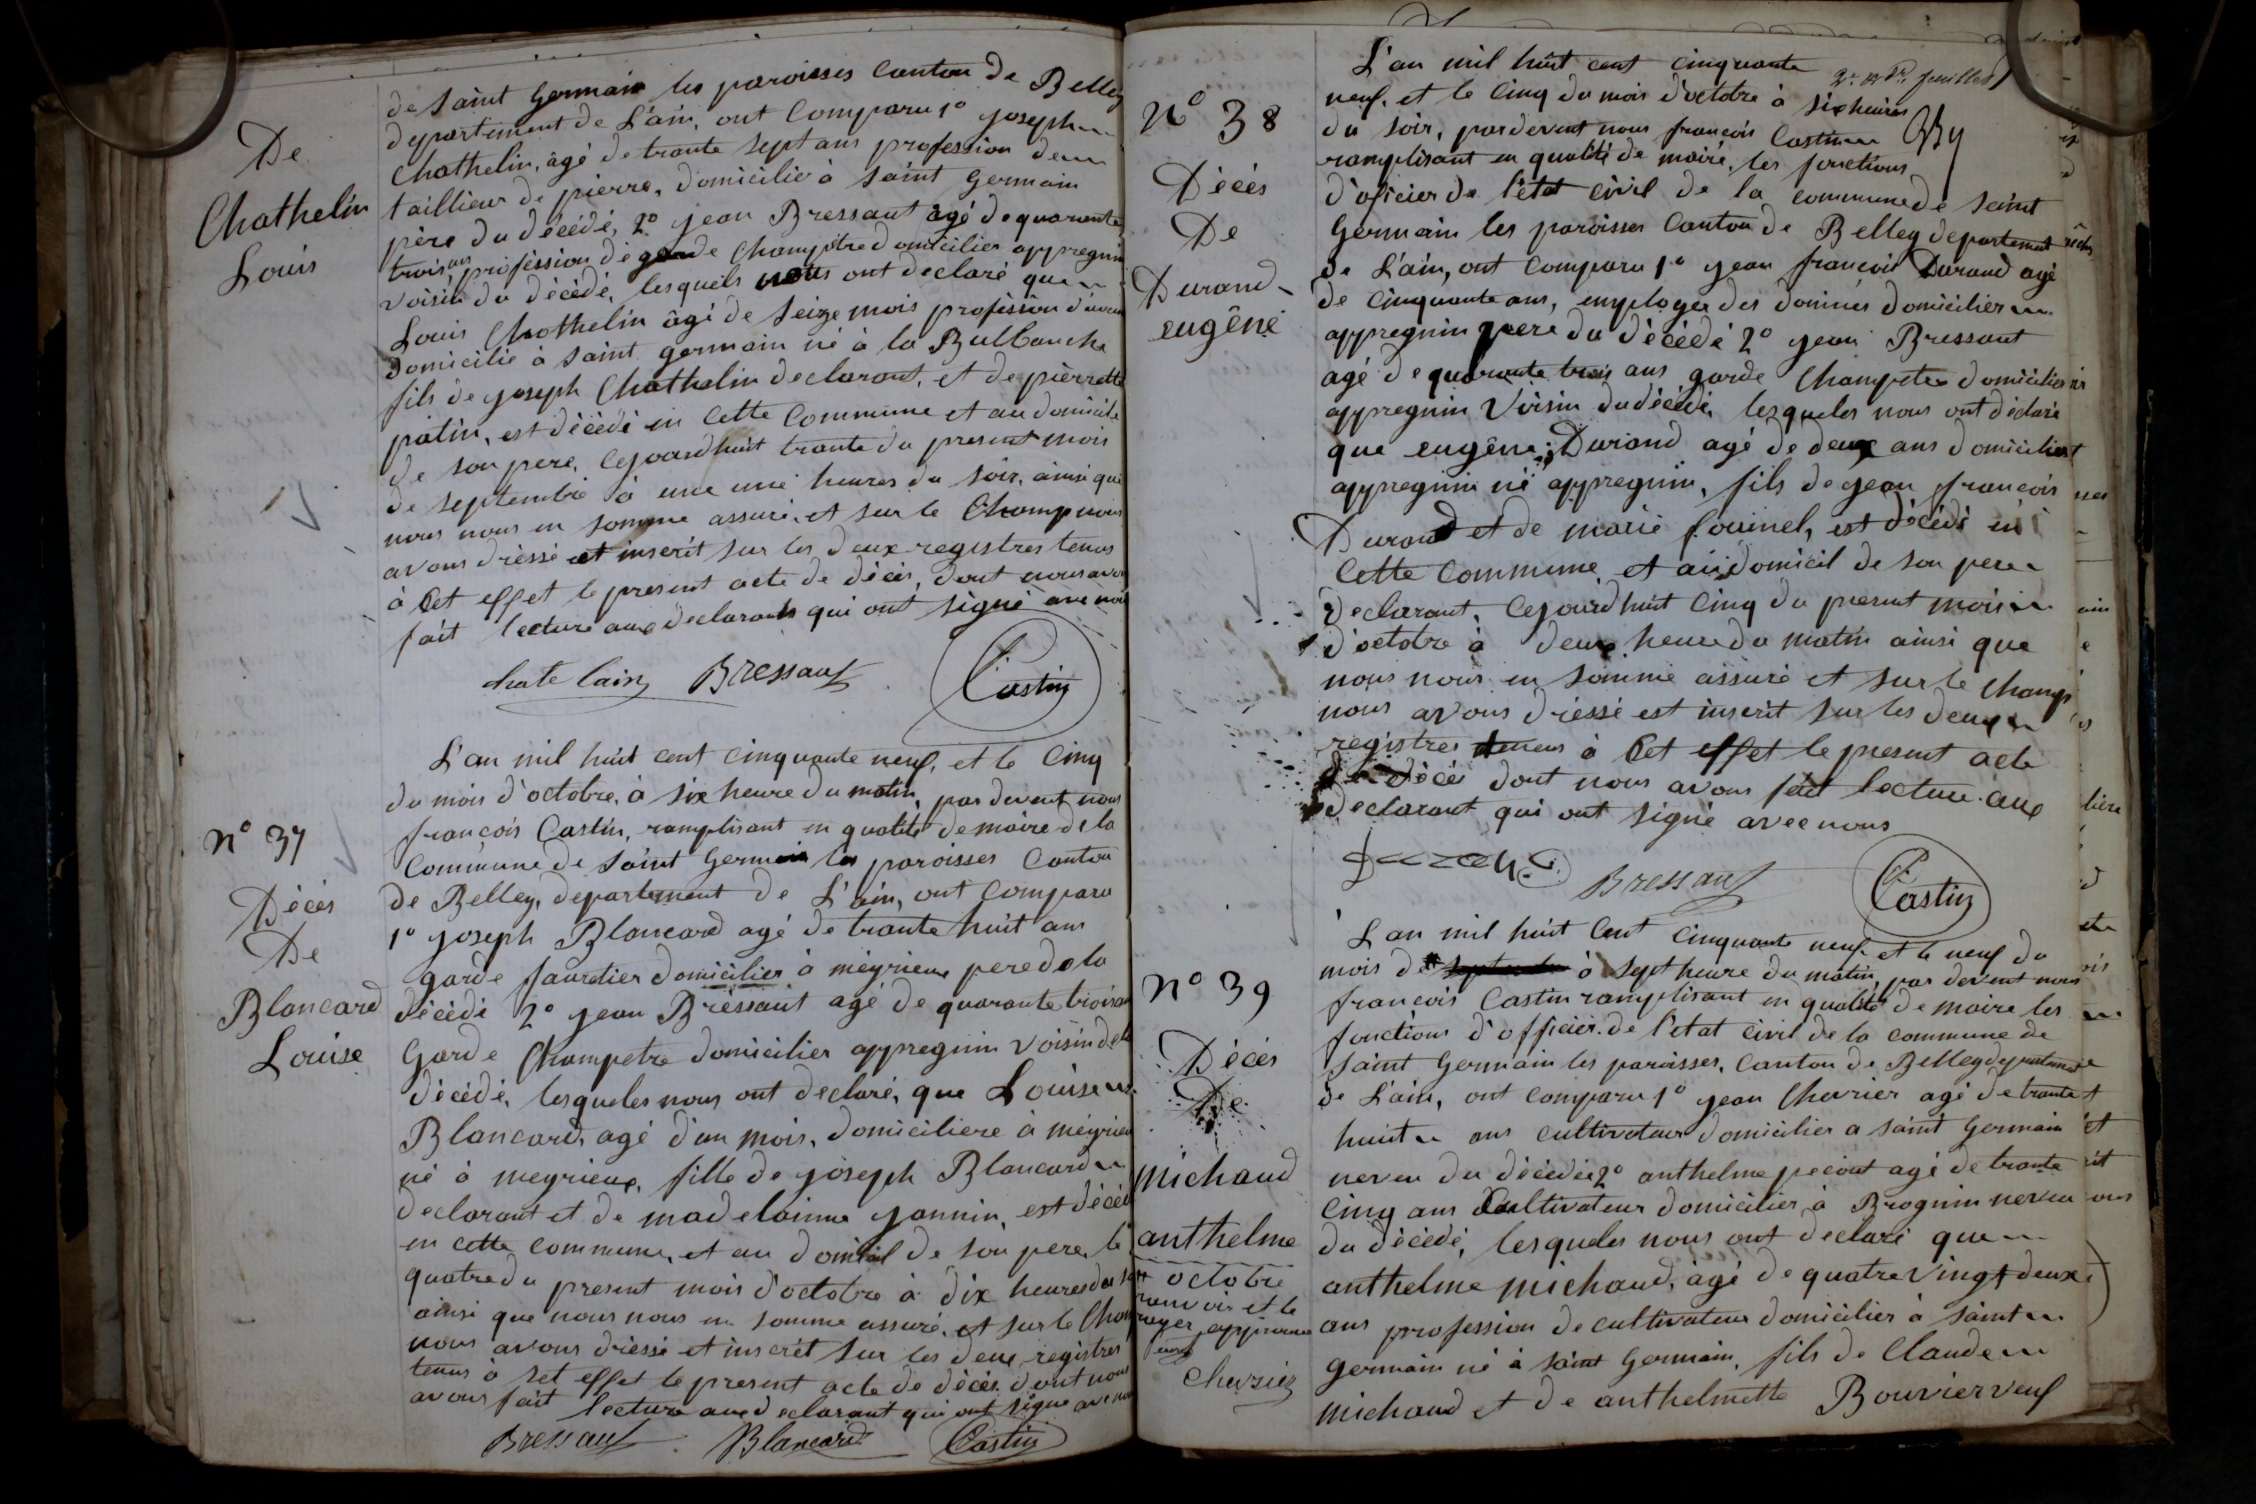 De
Chathelin
Louis
de saint Germain les paroisses Canton de Belley
departement de L'ain, ont Comparu 1º joseph
Chathelin, âgé de trante sept ans profession de
taillieur de pierre, domicilié à saint Germain
père du décédé, 2º jean Bressant âgé de quarente
trois ans profession de garde Champêtre domicilier appregnin
voisin du décédé, lesquels nous ont declaré que
Louis Chothelin âgé de seize mois profession d'aucun
domicilié à saint germain né à la Bulbanche
fils de joseph Chathelin declarant, et de pierrette
patin, est décédé en cette Commune et au domicile
de son pere, Cejourdhuit trante du present mois
de septembre à une heures du soir, ainsi que
nous nous en somme assuré, et sur le Champ nous
avons dréssé et inscrit sur les deux registres tenus
à Cet effet le present acte de décès, dont nous avons
fait lecture aux declarants qui ont signé avec nous
chatelain Bressant Castin
nº 37
Décés
De
Blancard
Louise
L'an mil huit cent cinquante neuf, et le Cinq
du mois d'octobre, à six heure du matin, par devent nous
françois Castin, ramplisant en qualité de maire de la
Commune de saint Germain les paroisses Canton
de Belley, departement de L'ain, ont Comparu
1º joseph Blancard agé de trante huit ans
garde fauretier domicilier à meyrieux pere de la
décédé 2º jean Bressant agé de quarante trois ans
Garde Champetre domicilier appregnin voisin de la
décédé, lesqueles nous ont declaré, que Louise
Blancard, agé d'un mois, domiciliere à méyrieu
né à meyrieux, fille de joseph Blancard
declarant et de madelainne jannin, est décédé
en cette commune, et au domicil de son pere, le
quatre du present mois d'octobre à dix heures du soir
ainsi que nous nous en somme assuré, et sur le Champ
nous avons dréssé et inscrit sur les deux registres
tenus à set effet le present acte de décés dont nous
avons fait lecture aux declarant qui ont signé avec nous
Bressant Blancard Castin
2e et Dr. feuillet
nº 38
Décés
De
Durand
eugêne
L'an mil huit cent cinquante
neuf, et le Cinq du mois d'octobre à six heures
du soir, pardevent nous françois Castin
ramplisant en qualité de maire, les fonctions
d'oficier de l'état civil de la commune de saint
Germain les paroisses Canton de Belley departement
de L'ain, ont comparu 1º jean françois Durand agé
de Cinquante ans, employer des douines domicilier
appregnin pere du décédé 2º jean Bressant
agé de quarante trois ans garde Champetre domicilier
appregnin Voisin du décédé, lesqueles nous ont déclaré
que eugêne Durand agé de deux ans domicilier
appregnin né appregnin, fils de jean françois
Durand et de marie fouinel, est décédé en
Cette Commune et au domicil de son pere
declarant, Cejourdhuit Cinq du present mois
d'octobre à deux heure du matin ainsi que
nous nous en somme assuré et sur le Champ
nous avons dréssé est inscrit sur les deux
registres tenus à Cet effet le present acte
de décés dont nous avons fait lecture aux
declarant qui ont signé avec nous
Bressant Castin
nº 39
Décés
De
michaud
anthelme
octobre
renvoi et le
rayer approuvé
Chevrier
L'an mil huit Cent Cinquante neuf et le neuf du
mois de septembre à sept heure du matin, par devent nous
françois Castin ramplisant en qualité de maire les
fonctions d'officier de l'etat civil de la commune de
saint Germain les paroisses, Canton de Belley departement
de L'ain, ont comparu 1º jean Chevrier agé de trante
huit ans cultivateur domicilier a saint Germain
neveu du décédé 2º anthelme pecout agé de trante
Cinq ans Cultivateur domicilier à Brognin neveu
du décédé, lesqueles nous ont declaré que
anthelme michaud, âgé de quatre vingt deux
ans profession de cultivateur domicilier à saint
germain né à saint Germain, fils de Claude
michaud et de anthelmette Bouvier veuf